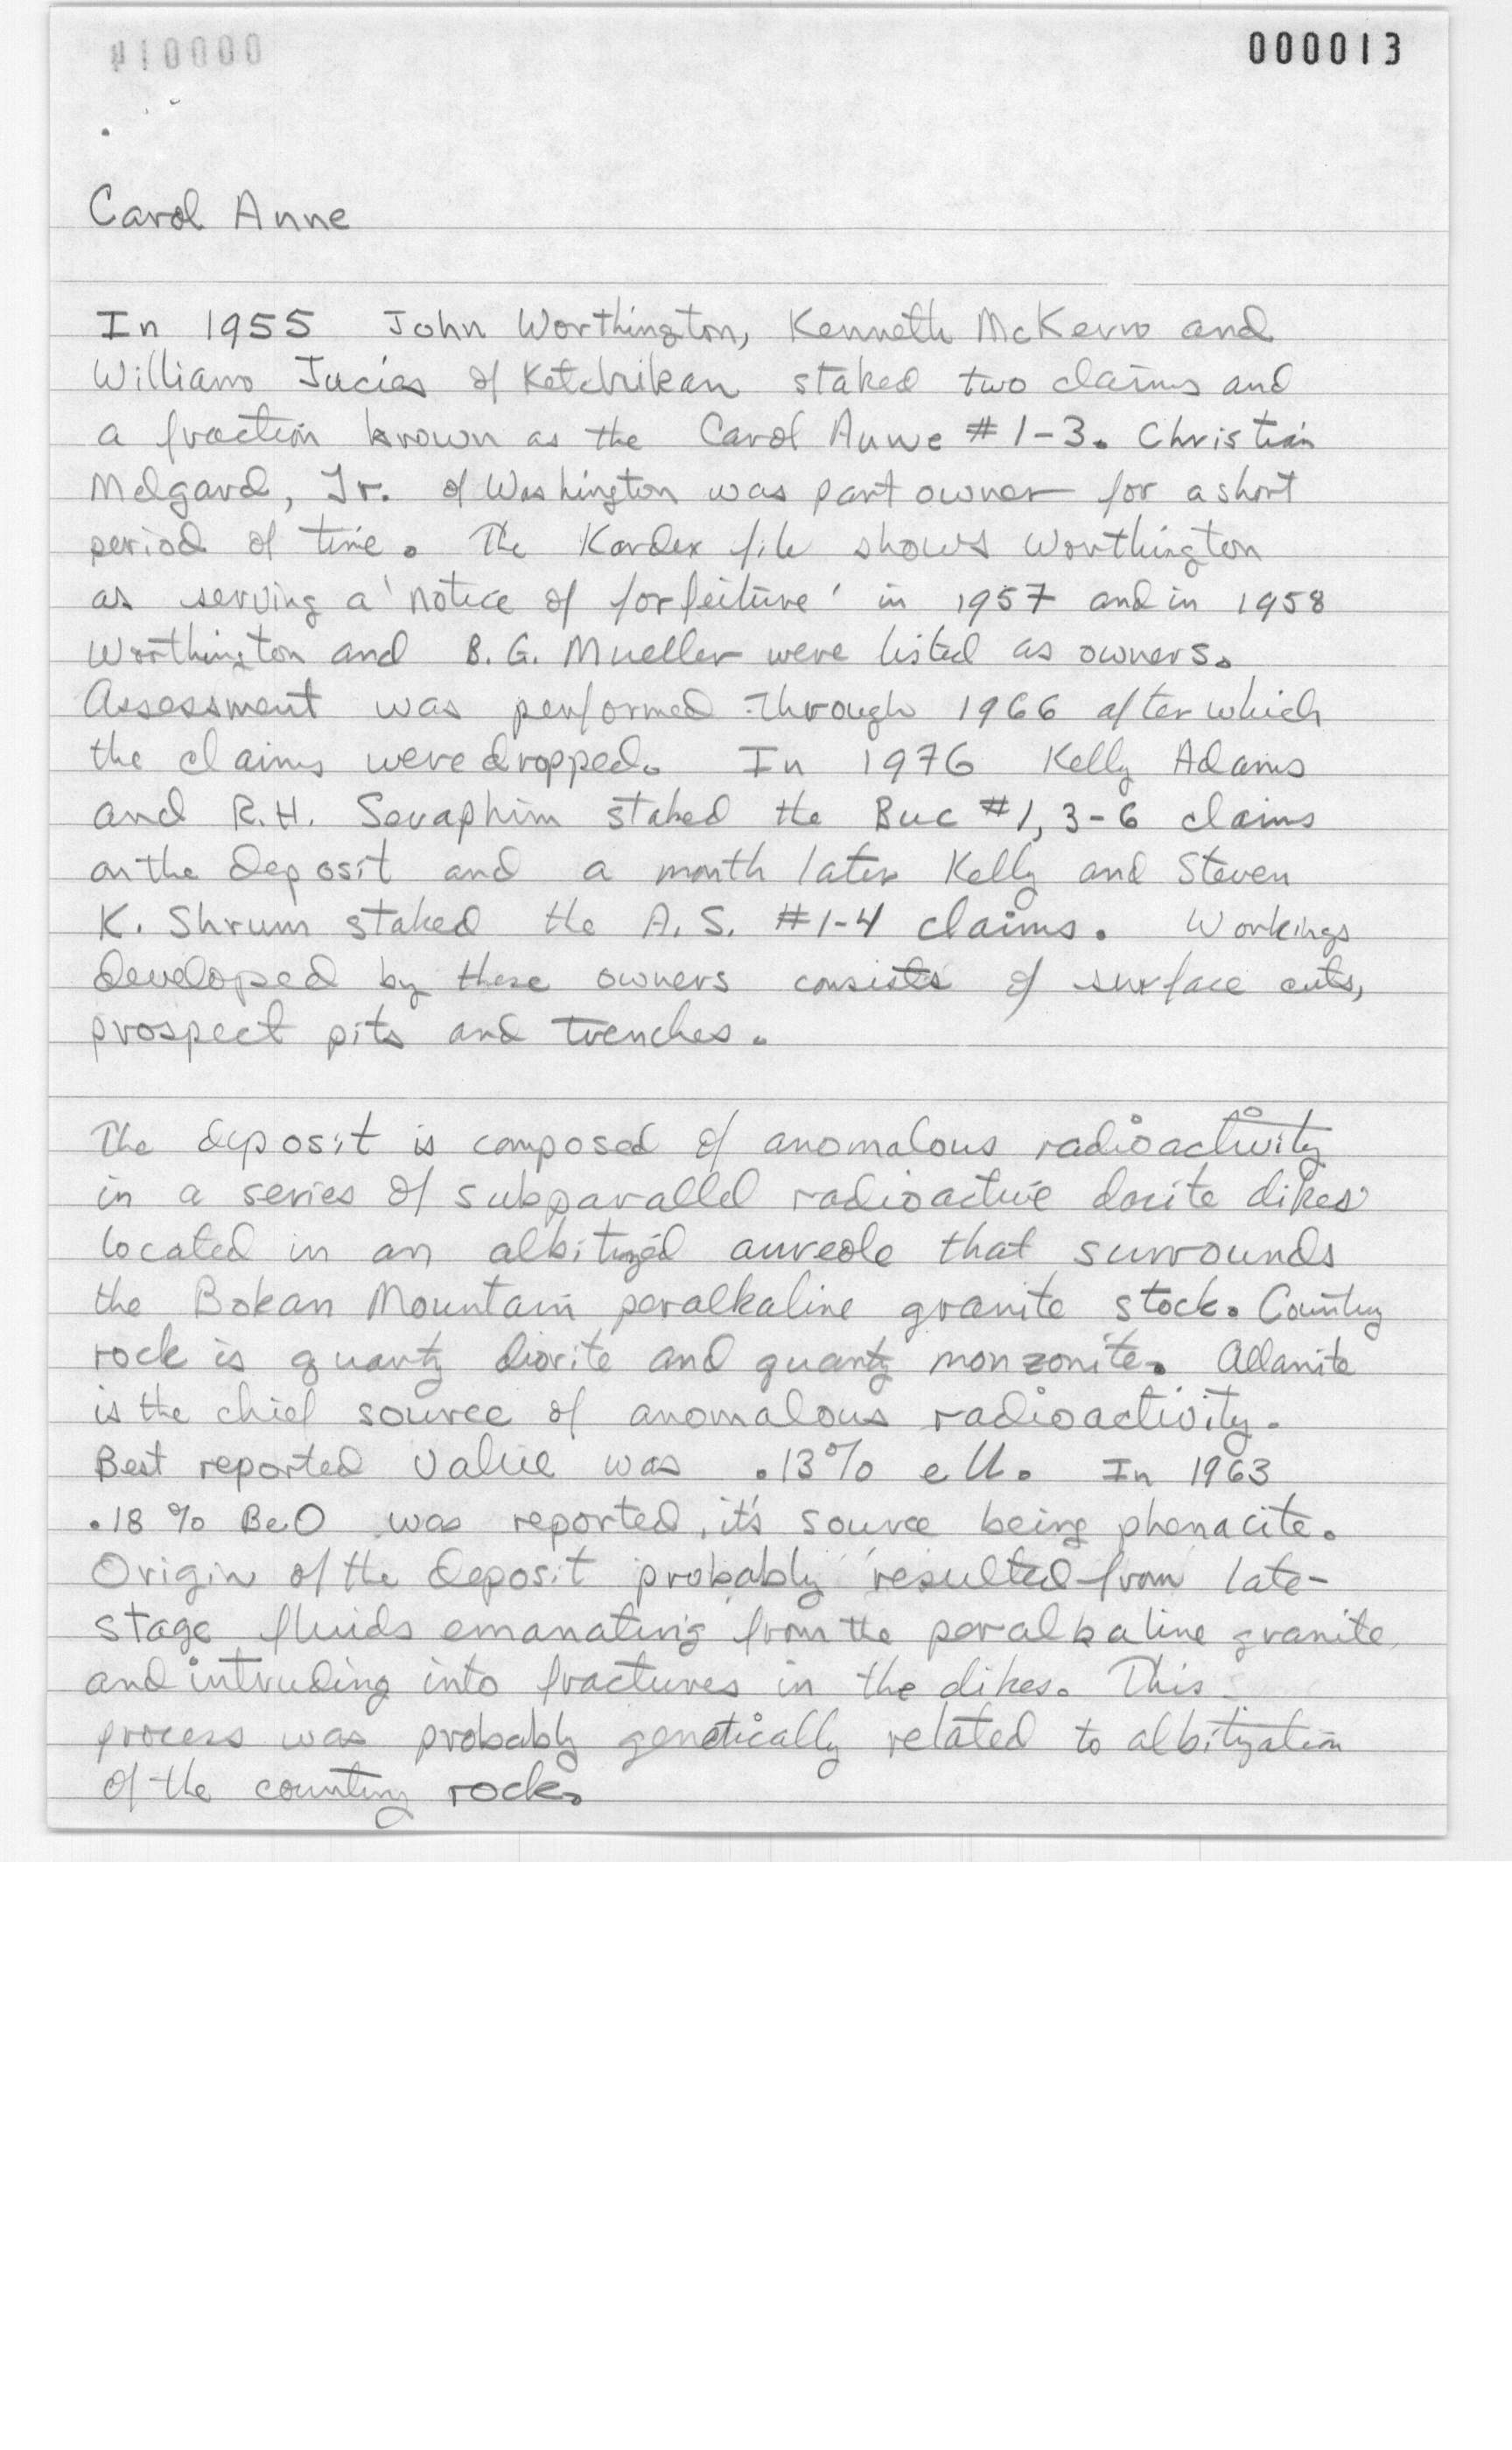 000013
Carol Anne
In 1955 John Worthington, Kenneth McKenno and
William Jucias of Ketchikan staked two claims and
a fraction known as the Carol Anne #1-3. Christian
Melgard, Jr. of Washington was part owner for a short
period of time. The Kardex file shows Worthington
as serving a 'notice of forfeiture' in 1957 and in 1958
Worthington and B. G. Mueller were listed as owners.
Assessment was performed through 1966 after which
the claims were dropped. In 1976 Kelly Adams
and R.H. Seraphim staked the Buc #1, 3-6 claims
on the deposit and a month later Kelly and Steven
K. Shrum staked the A.S. #1-4 claims. Workings
developed by these owners consists of surface cuts,
prospect pits and trenches.
The deposit is composed of anomalous radioactivity
in a series of subparallel radioactive dacite dikes
located in an albitized aureole that surrounds
the Bokan Mountain peralkaline granite stock. Country
rock is quartz diorite and quartz monzonite. Allanite
is the chief source of anomalous radioactivity.
Best reported value was .13% eU. In 1963
.18 % BeO was reported, it's source being phenacite.
Origin of the deposit probably resulted from late-
stage fluids emanating from the peralkaline granite
and intruding into fractures in the dikes. This
process was probably genetically related to albitization
of the country rock.